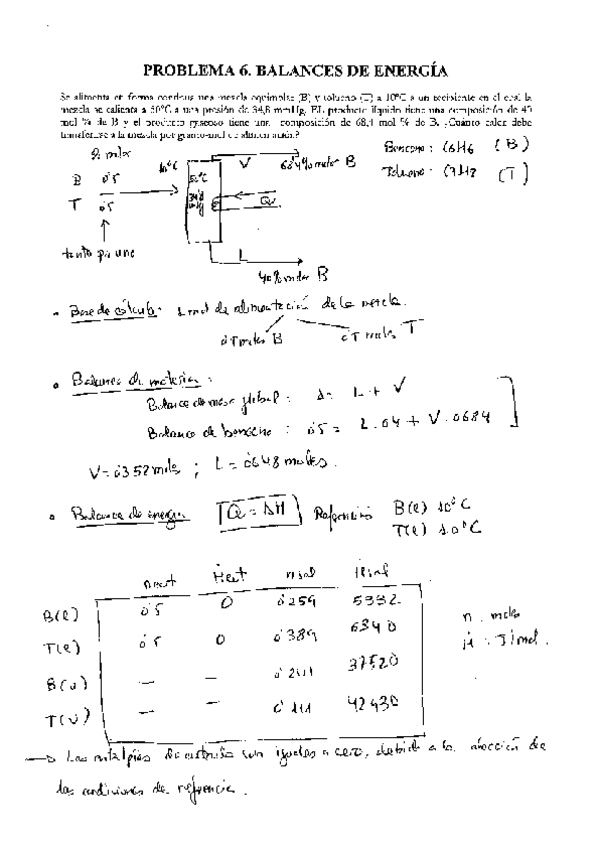 PROBLEMA 6. BALANCES DE ENERGÍA
Se alimenta en forma continua una mezcla equimolar (B) y tolueno (T) a 10ºC a un recipiente en el cual la
mezcla se calienta a 50ºC a una presión de 34,8 mmHg. EL producto líquido tiene una composición de 40
mol % de B y el producto gaseoso tiene una composición de 68,4 mol % de B. ¿Cuánto calor debe
transferirse a la mezcla por gramo-mol de alimentación?
Benceno: C6H6 (B)
Tolueno: C7H8 (T)
% molar
B 0'5
T 0'5
tanto por uno
10ºC
50ºC
V
68'4% molar B
Q
L
40% molar B
• Base de cálculo: 1 mol de alimentación de la mezcla.
moles B
moles T
• Balance de materia:
Balance de masa global: 1 = L + V
Balance de benceno: 0'5 = L.0'4 + V.0'684
V=0'352 moles ; L=0'648 moles.
• Balance de energía Q = ΔH Referencias B(l) 10ºC
T(l) 10ºC
nent Hent nsal Hsal
B(l) 0'5 0 0'259 5332
T(l) 0'5 0 0'389 6340
B(v) — — 0'241 37520
T(v) — — 0'111 42430
n: moles
H: J/mol.
→ Las entalpías de entrada son iguales a cero, debido a la elección de
las condiciones de referencia.